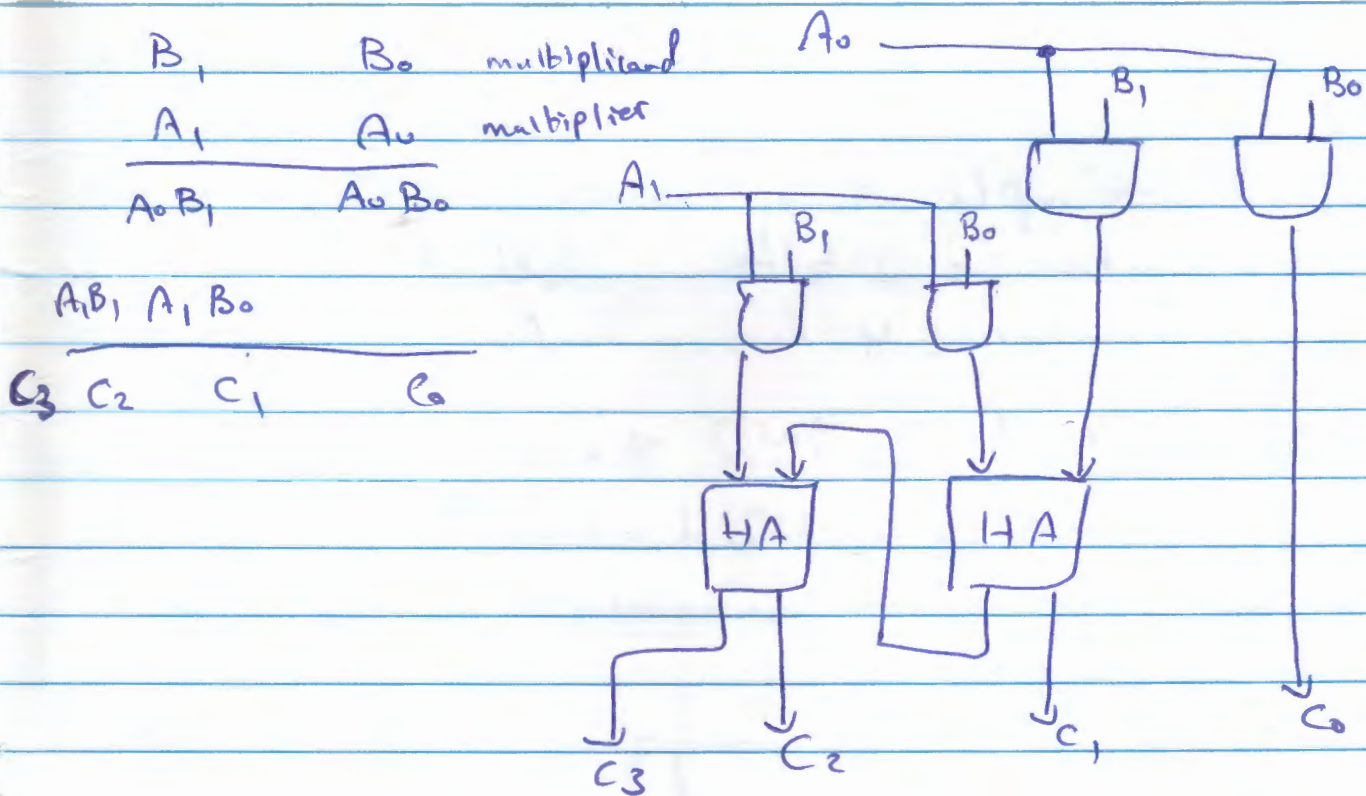 B₁ B₀ multiplicand
A₁ A₀ multiplier
A₀B₁ A₀B₀
A₁B₁ A₁B₀
C₃ C₂ C₁ C₀
A₀
B₁ B₀
A₁
B₁ B₀
HA HA
C₃ C₂ C₁ C₀